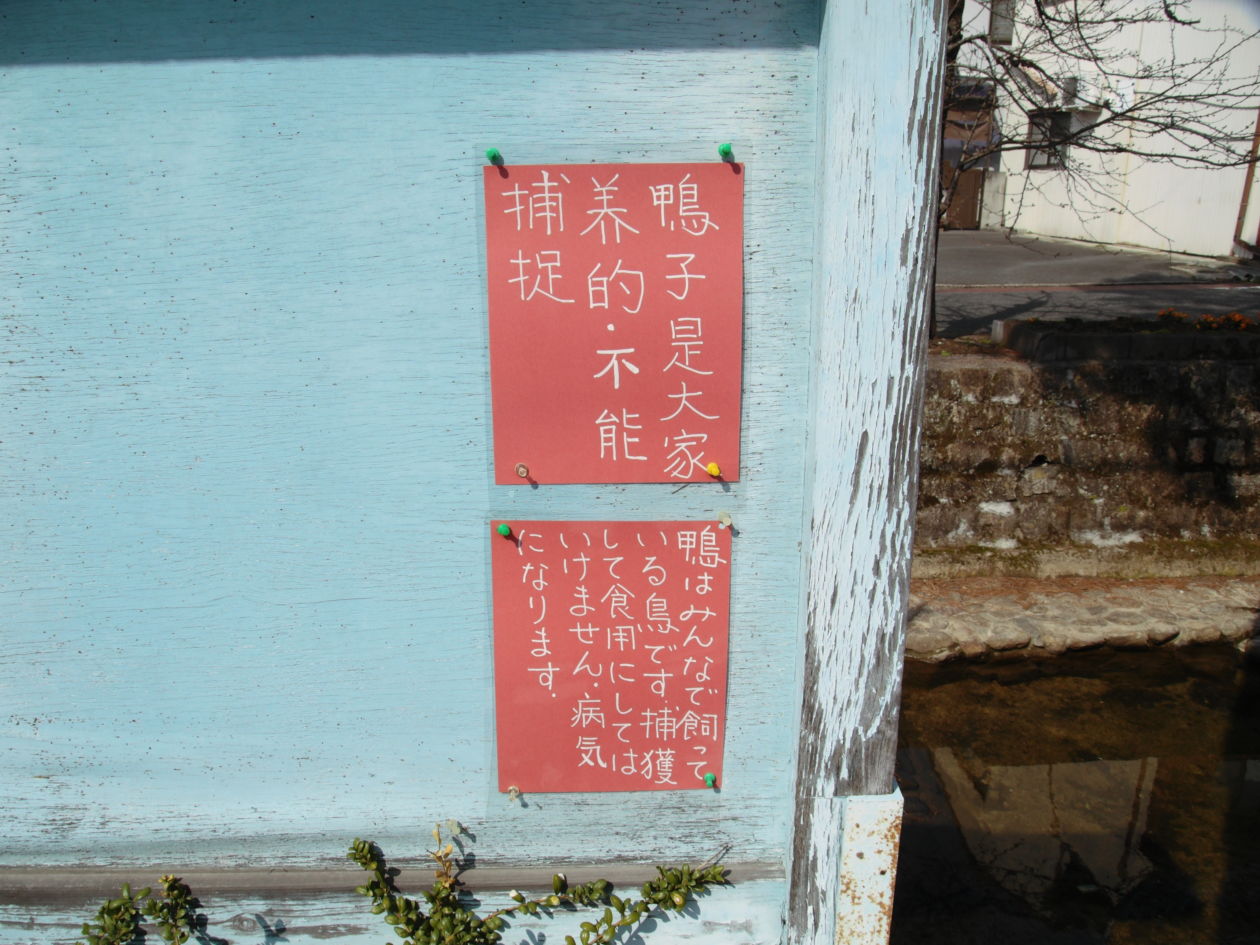 鴨子是大家
养的.不能
捕捉
鴨はみんなで飼って
いる鳥です.捕獲
して食用にしては
いけません.病気
になります.